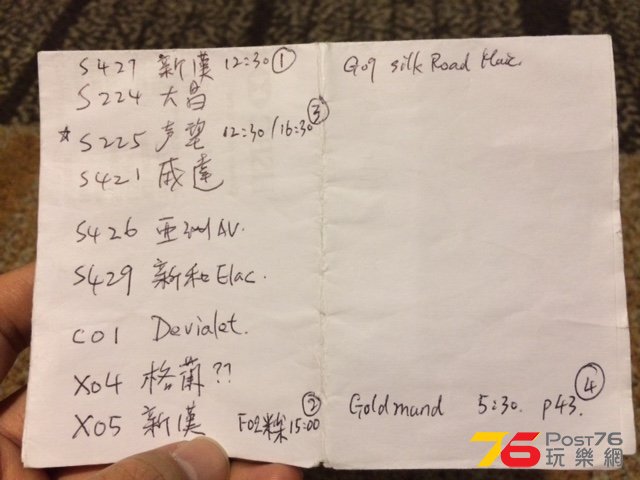 S427 新漢 12:30 ①
S224 大昌
☆ S225 声望 12:30/16:30 ③
S421 威達
S426 亚洲AV.
S429 新和Elac.
C01 Devialet.
X04 格蘭??
X05 新漢 F02 15:00 ②
G09 Silk Road Music
Goldmund 5:30. P43. ④
76 POST76
玩樂網